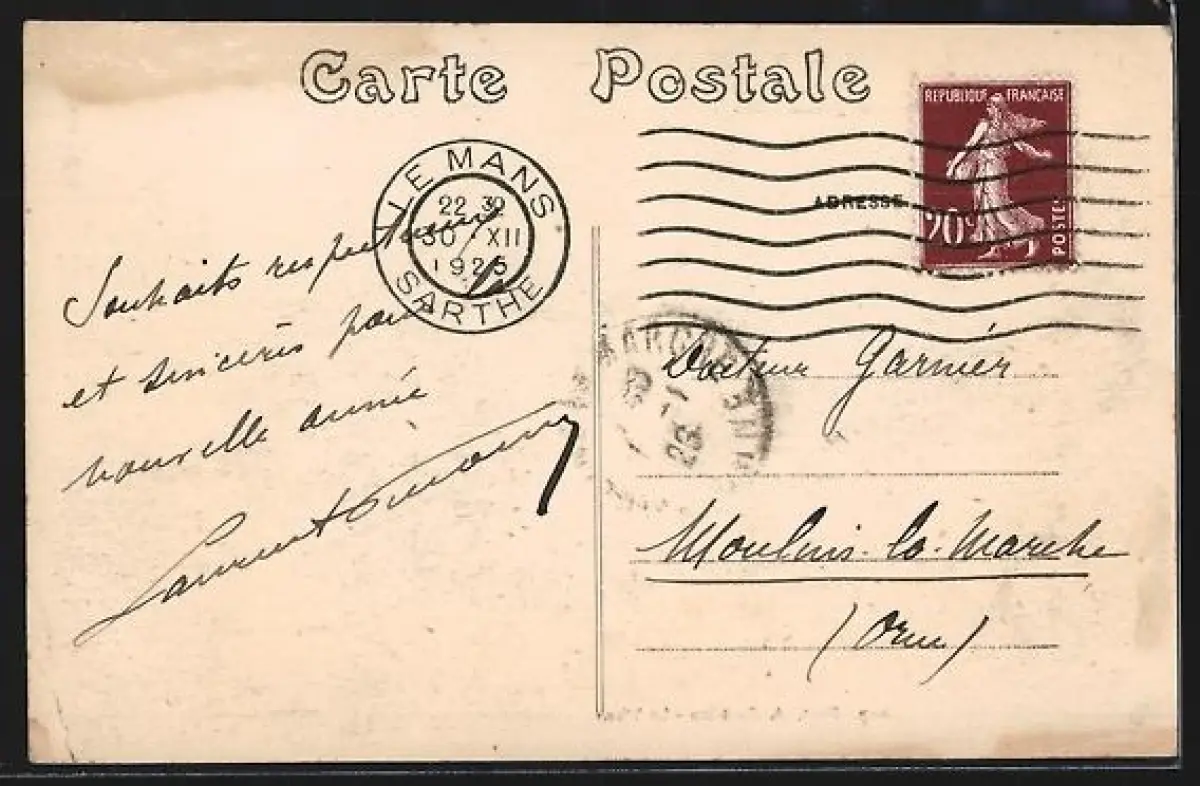 Carte Postale
REPUBLIQUE FRANÇAISE
20c
POSTES
ADRESSE
LE MANS
22 30
30 XII
1925
SARTHE
Souhaits respectueux
et sincères pour
nouvelle année
Docteur Garnier
Moulins-la-Marche
(Orne)